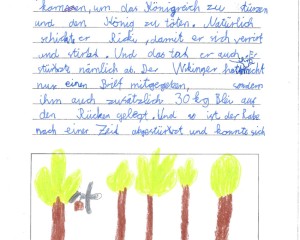 kommen, um das Königreich zu stürzen
und den König zu töten. Natürlich
schickt er Ricki, damit er sich verirrt
und stirbt. Und das tat er auch. Er
stürbt nämlich ab. Der Wikinger hat
nur einen Brief mitgegeben, sondern
ihm auch zusätzlich 30 kg Blei auf
den Rücken gelegt. Und so ist der Rabe
nach einer Zeit abgestürtzt und konnte sich